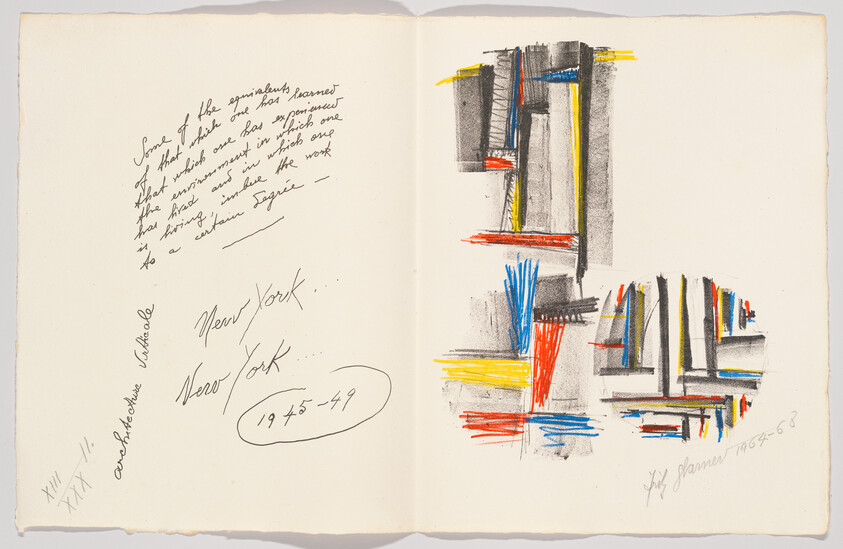 Some of the equivalents
of that which one has learned
that which one has experienced
the environment in which one
has lived and in which one
is living, imbue the work
to a certain degrée —
New York ...
New York ....
1945-49
architecture verticale
XIII
XXX
11.
Fritz Glarner 1964-63